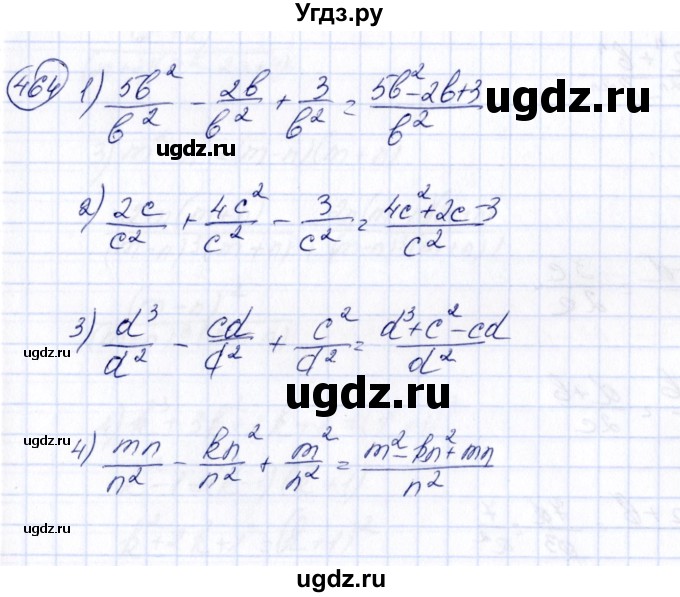 Угдз.ру
464 1) 5b²/b² - 2b/b² + 3/b² = (5b²-2b+3)/b²
ugdz.ru
ugdz.ru
2) 2c/c² + 4c²/c² - 3/c² = (4c²+2c-3)/c²
3) d³/d² - cd/d² + c²/d² = (d³+c²-cd)/d²
ugdz.ru
ugdz.ru
4) mn/n² - kn²/n² + m²/n² = (m²-kn²+mn)/n²
ugdz.ru
ugdz.ru
ugdz.ru